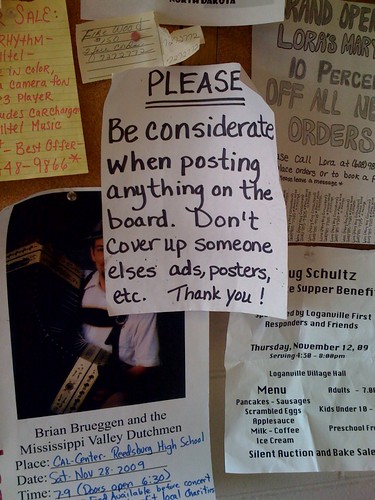 NORTH DAKOTA
SALE:
RHYTHM-
lltel-
IN COLOR,
camera
3 Player
udes Car Charger
lltel Music
Best Offer-
48-9866*
Fire Wood
GRAND OPEN
LORA'S MARY
10 PERCEN
OFF ALL NE
ORDERS
Call Lora at
place orders or to book a
leave a message *
PLEASE
Be considerate
when posting
anything on the
board. Don't
cover up someone
elses ads, posters,
etc. Thank you!
ug Schultz
e Supper Benefi
ed by Loganville First
Responders and Friends
Thursday, November 12, 09
Serving 4:30 - 8:00pm
Loganville Village Hall
Menu
Adults - 7.0
Pancakes - Sausages
Scrambled Eggs
Kids Under 10 -
Applesauce
Milk - Coffee
Preschool Fr
Ice Cream
Silent Auction and Bake Sale
Brian Brueggen and the
Mississippi Valley Dutchmen
Place: CAL-Center- Reedsburg High School
Date: Sat. Nov 28-2009
Time: 7:9 (Doors open 6:30)
Food Available before concert
local charities